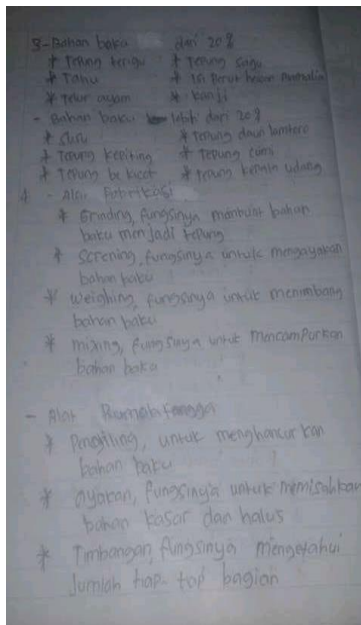 3 - Bahan baku dari 20%
* Tepung terigu * Tepung sagu
* Tahu * Isi Perut hewan mamalia
* Telur ayam * kanji
- Bahan baku lebih dari 20%
* Curu * Tepung daun lamtoro
* Tepung kepiting * Tepung cumi
* Tepung bekicot * Tepung kepala udang
4 - Alat Pabrikasi
* Grinding, fungsinya membuat bahan
baku menjadi tepung
* Screning, fungsinya untuk mengayakan
bahan baku
* Weighing, fungsinya untuk menimbang
bahan baku
* mixing, fungsinya untuk mencampurkan
bahan baku
- Alat Rumah Tangga
* Penggiling, untuk menghancurkan
bahan baku
* ayakan, fungsinya untuk memisahkan
bahan kasar dan halus
* Timbangan, fungsinya mengetahui
Jumlah tiap-tiap bagian